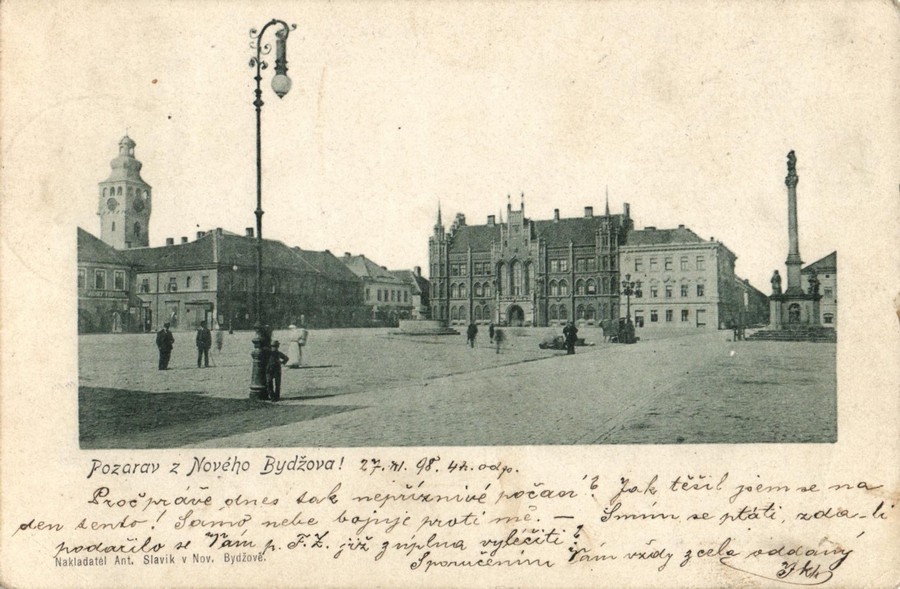 Pozarav z Nového Bydžova! 27. XI. 98. 4h. odp.
Proč právě dnes tak nepříznivé počasí? Jak těšil jsem se na
den tento! Samo nebe bojuje proti mě. — Smím se ptáti, zda-li
podařilo se Vám p. F. Z. již zúplna vyléčiti?
S poručením Vám vždy zcela oddaný
Nakladatel Ant. Slavík v Nov. Bydžově.